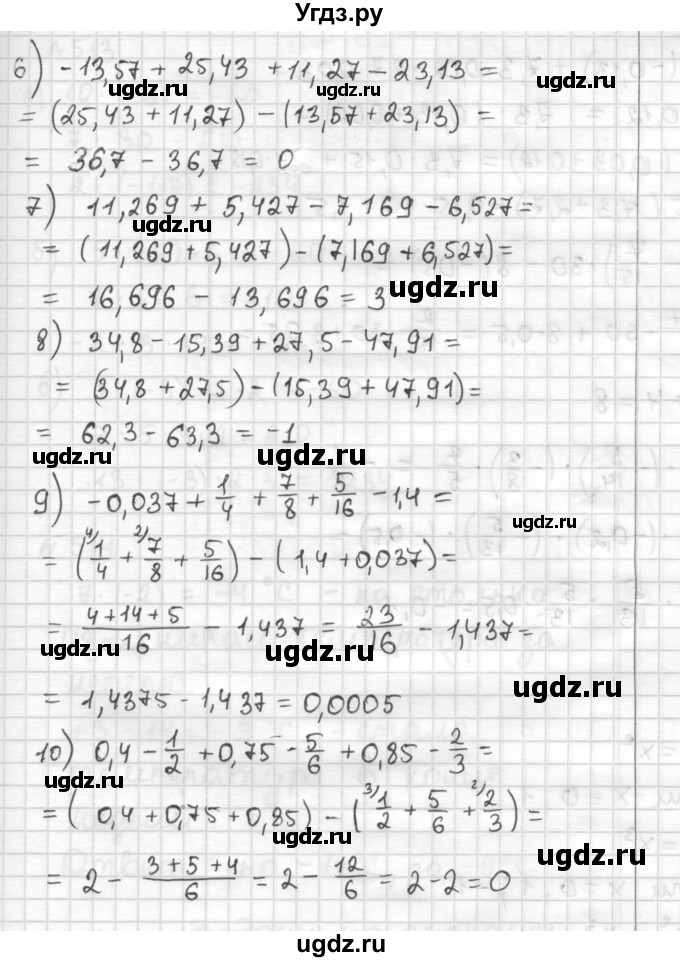 Угдз.ру
6) -13,57 + 25,43 + 11,27 - 23,13 =
ugdz.ru ugdz.ru
= (25,43 + 11,27) - (13,57 + 23,13) =
= 36,7 - 36,7 = 0
ugdz.ru
7) 11,269 + 5,427 - 7,169 - 6,527 =
ugdz.ru
= (11,269 + 5,427) - (7,169 + 6,527) =
= 16,696 - 13,696 = 3
ugdz.ru
8) 34,8 - 15,39 + 27,5 - 47,91 =
= (34,8 + 27,5) - (15,39 + 47,91) =
= 62,3 - 63,3 = -1
ugdz.ru ugdz.ru
9) -0,037 + 1/4 + 7/8 + 5/16 - 1,4 =
ugdz.ru
= (4/ 1/4 + 2/ 7/8 + 5/16) - (1,4 + 0,037) =
= (4 + 14 + 5)/16 - 1,437 = 23/16 - 1,437 =
ugdz.ru ugdz.ru
ugdz.ru
= 1,4375 - 1,437 = 0,0005
10) 0,4 - 1/2 + 0,75 - 5/6 + 0,85 - 2/3 =
ugdz.ru
= (0,4 + 0,75 + 0,85) - (3/ 1/2 + 5/6 + 2/ 2/3) =
ugdz.ru
ugdz.ru
= 2 - (3 + 5 + 4)/6 = 2 - 12/6 = 2 - 2 = 0
ugdz.ru
ugdz.ru